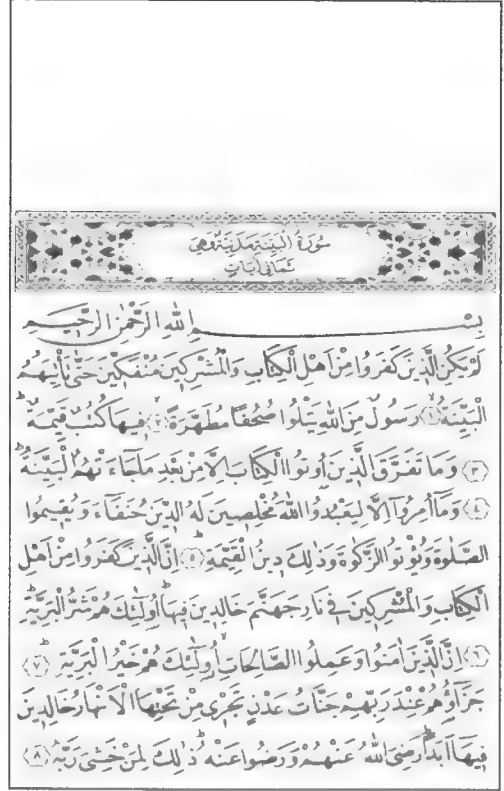 سُورَةُ الْبَيِّنَةِ مَدَنِيَّةٌ وَهِيَ
ثَمَانِي اٰيَاتٍ
بِسْمِ اللّٰهِ الرَّحْمٰنِ الرَّحِيمِ
لَمْ يَكُنِ الَّذِينَ كَفَرُوا مِنْ اَهْلِ الْكِتَابِ وَالْمُشْرِكِينَ مُنْفَكِّينَ حَتّٰى تَأْتِيَهُمُ
الْبَيِّنَةُ ﴿١﴾ رَسُولٌ مِنَ اللّٰهِ يَتْلُوا صُحُفًا مُطَهَّرَةً ﴿٢﴾ فِيهَا كُتُبٌ قَيِّمَةٌ
﴿٣﴾ وَمَا تَفَرَّقَ الَّذِينَ اُوتُوا الْكِتَابَ اِلَّا مِنْ بَعْدِ مَا جَاءَتْهُمُ الْبَيِّنَةُ
﴿٤﴾ وَمَا اُمِرُوا اِلَّا لِيَعْبُدُوا اللّٰهَ مُخْلِصِينَ لَهُ الدِّينَ حُنَفَاءَ وَيُقِيمُوا
الصَّلٰوةَ وَيُؤْتُوا الزَّكٰوةَ وَذٰلِكَ دِينُ الْقَيِّمَةِ ﴿٥﴾ اِنَّ الَّذِينَ كَفَرُوا مِنْ اَهْلِ
الْكِتَابِ وَالْمُشْرِكِينَ فِي نَارِ جَهَنَّمَ خَالِدِينَ فِيهَا اُولٰئِكَ هُمْ شَرُّ الْبَرِيَّةِ
﴿٦﴾ اِنَّ الَّذِينَ اٰمَنُوا وَعَمِلُوا الصَّالِحَاتِ اُولٰئِكَ هُمْ خَيْرُ الْبَرِيَّةِ ﴿٧﴾
جَزَاؤُهُمْ عِنْدَ رَبِّهِمْ جَنَّاتُ عَدْنٍ تَجْرِي مِنْ تَحْتِهَا الْاَنْهَارُ خَالِدِينَ
فِيهَا اَبَدًا رَضِيَ اللّٰهُ عَنْهُمْ وَرَضُوا عَنْهُ ذٰلِكَ لِمَنْ خَشِيَ رَبَّهُ ﴿٨﴾